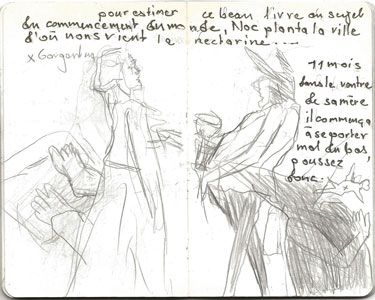 pour estimer ce beau livre au sujet
du commencement du monde, Noc planta la ville
d'où nous vient la nectarine....
x Gargantua
11 mois
dans le ventre
de sa mère
il commença
à se porter
mal du bas
poussez
donc.